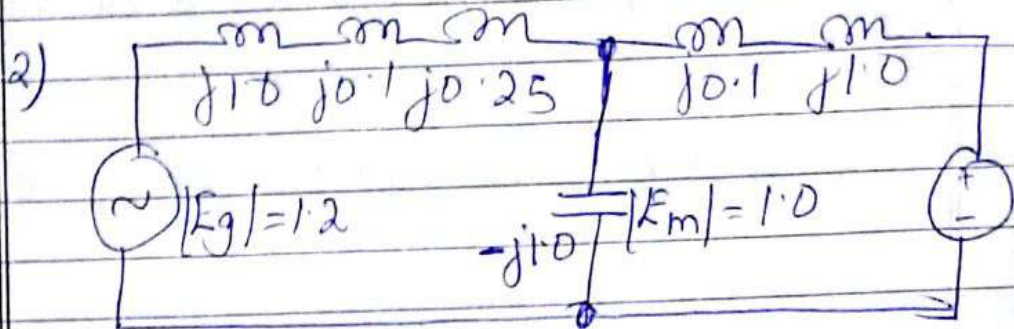 2)
j1.0 j0.1 j0.25 j0.1 j1.0
~ |Eg| = 1.2 -j1.0 |Em| = 1.0 + -